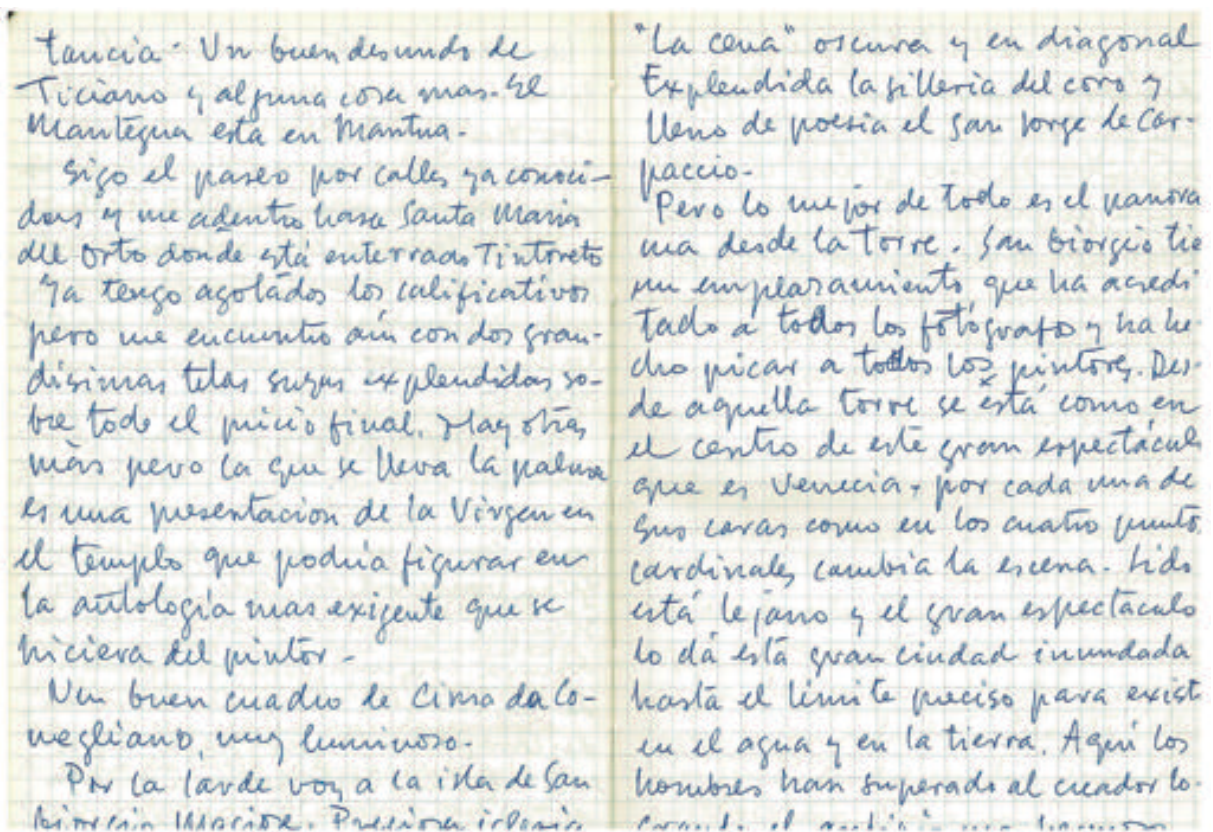 tancia. Un buen desnudo de
Ticiano y alguna cosa mas. El
Mantegna esta en Mantua.
Sigo el paseo por calles ya conoci-
das y me adentro hasa Santa Maria
dell Orto donde está enterrado Tintoreto
Ya tengo agotados los calificativos
pero me encuentro aún con dos gran-
disimas telas suyas explendidas so-
bre todo el juicio final. Hay otras
más pero la que se lleva la palma
es una presentacion de la Virgen en
el templo que podria figurar en
la antologia mas exigente que se
hiciera del pintor -
Un buen cuadro de Cima da Co-
negliano, muy luminoso.
Por la tarde voy a la isla de San
Giorgio Maciore. Preciosa iglesia
"La cena" oscura y en diagonal
Explendida la silleria del coro y
lleno de poesia el San Jorge de Car-
paccio.
Pero lo mejor de todo es el panora
ma desde la torre. San Giorgio tie
un emplazamiento que ha acredi
tado a todos los fotógrafos y ha he
cho picar a todos los pintores. Des-
de aquella torre se está como en
el centro de este gran espectácul
que es Venecia, por cada una de
sus caras como en los cuatro punto
cardinales cambia la escena. Lido
está lejano y el gran espectaculo
lo dá está gran ciudad inundada
hasta el límite preciso para exist
en el agua y en la tierra. Aqui los
hombres han superado al creador lo-